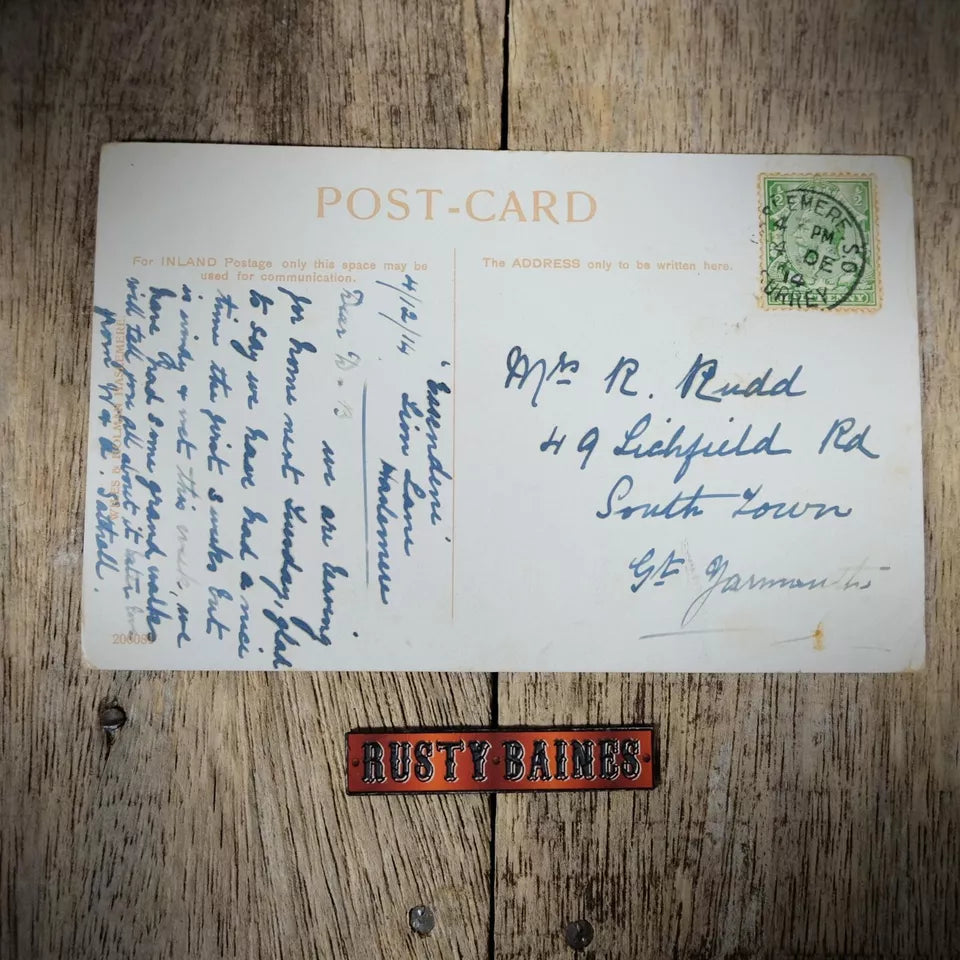 POST-CARD
For INLAND Postage only this space may be
used for communication.
The ADDRESS only to be written here.
½ ½
4 PM
DE
14
SURREY
S.O.
Mrs R. Rudd
49 Lichfield Rd
South Town
Gt Yarmouth
Lion Lane
Haslemere
4/12/14
Dear
we are leaving
for home next Sunday, glad
to say we have had a nice
time the first 3 weeks but
is windy & wet this week, we
have had some grand walks
will tell you all about it later
from
HASLEMERE
RUSTY BAINES